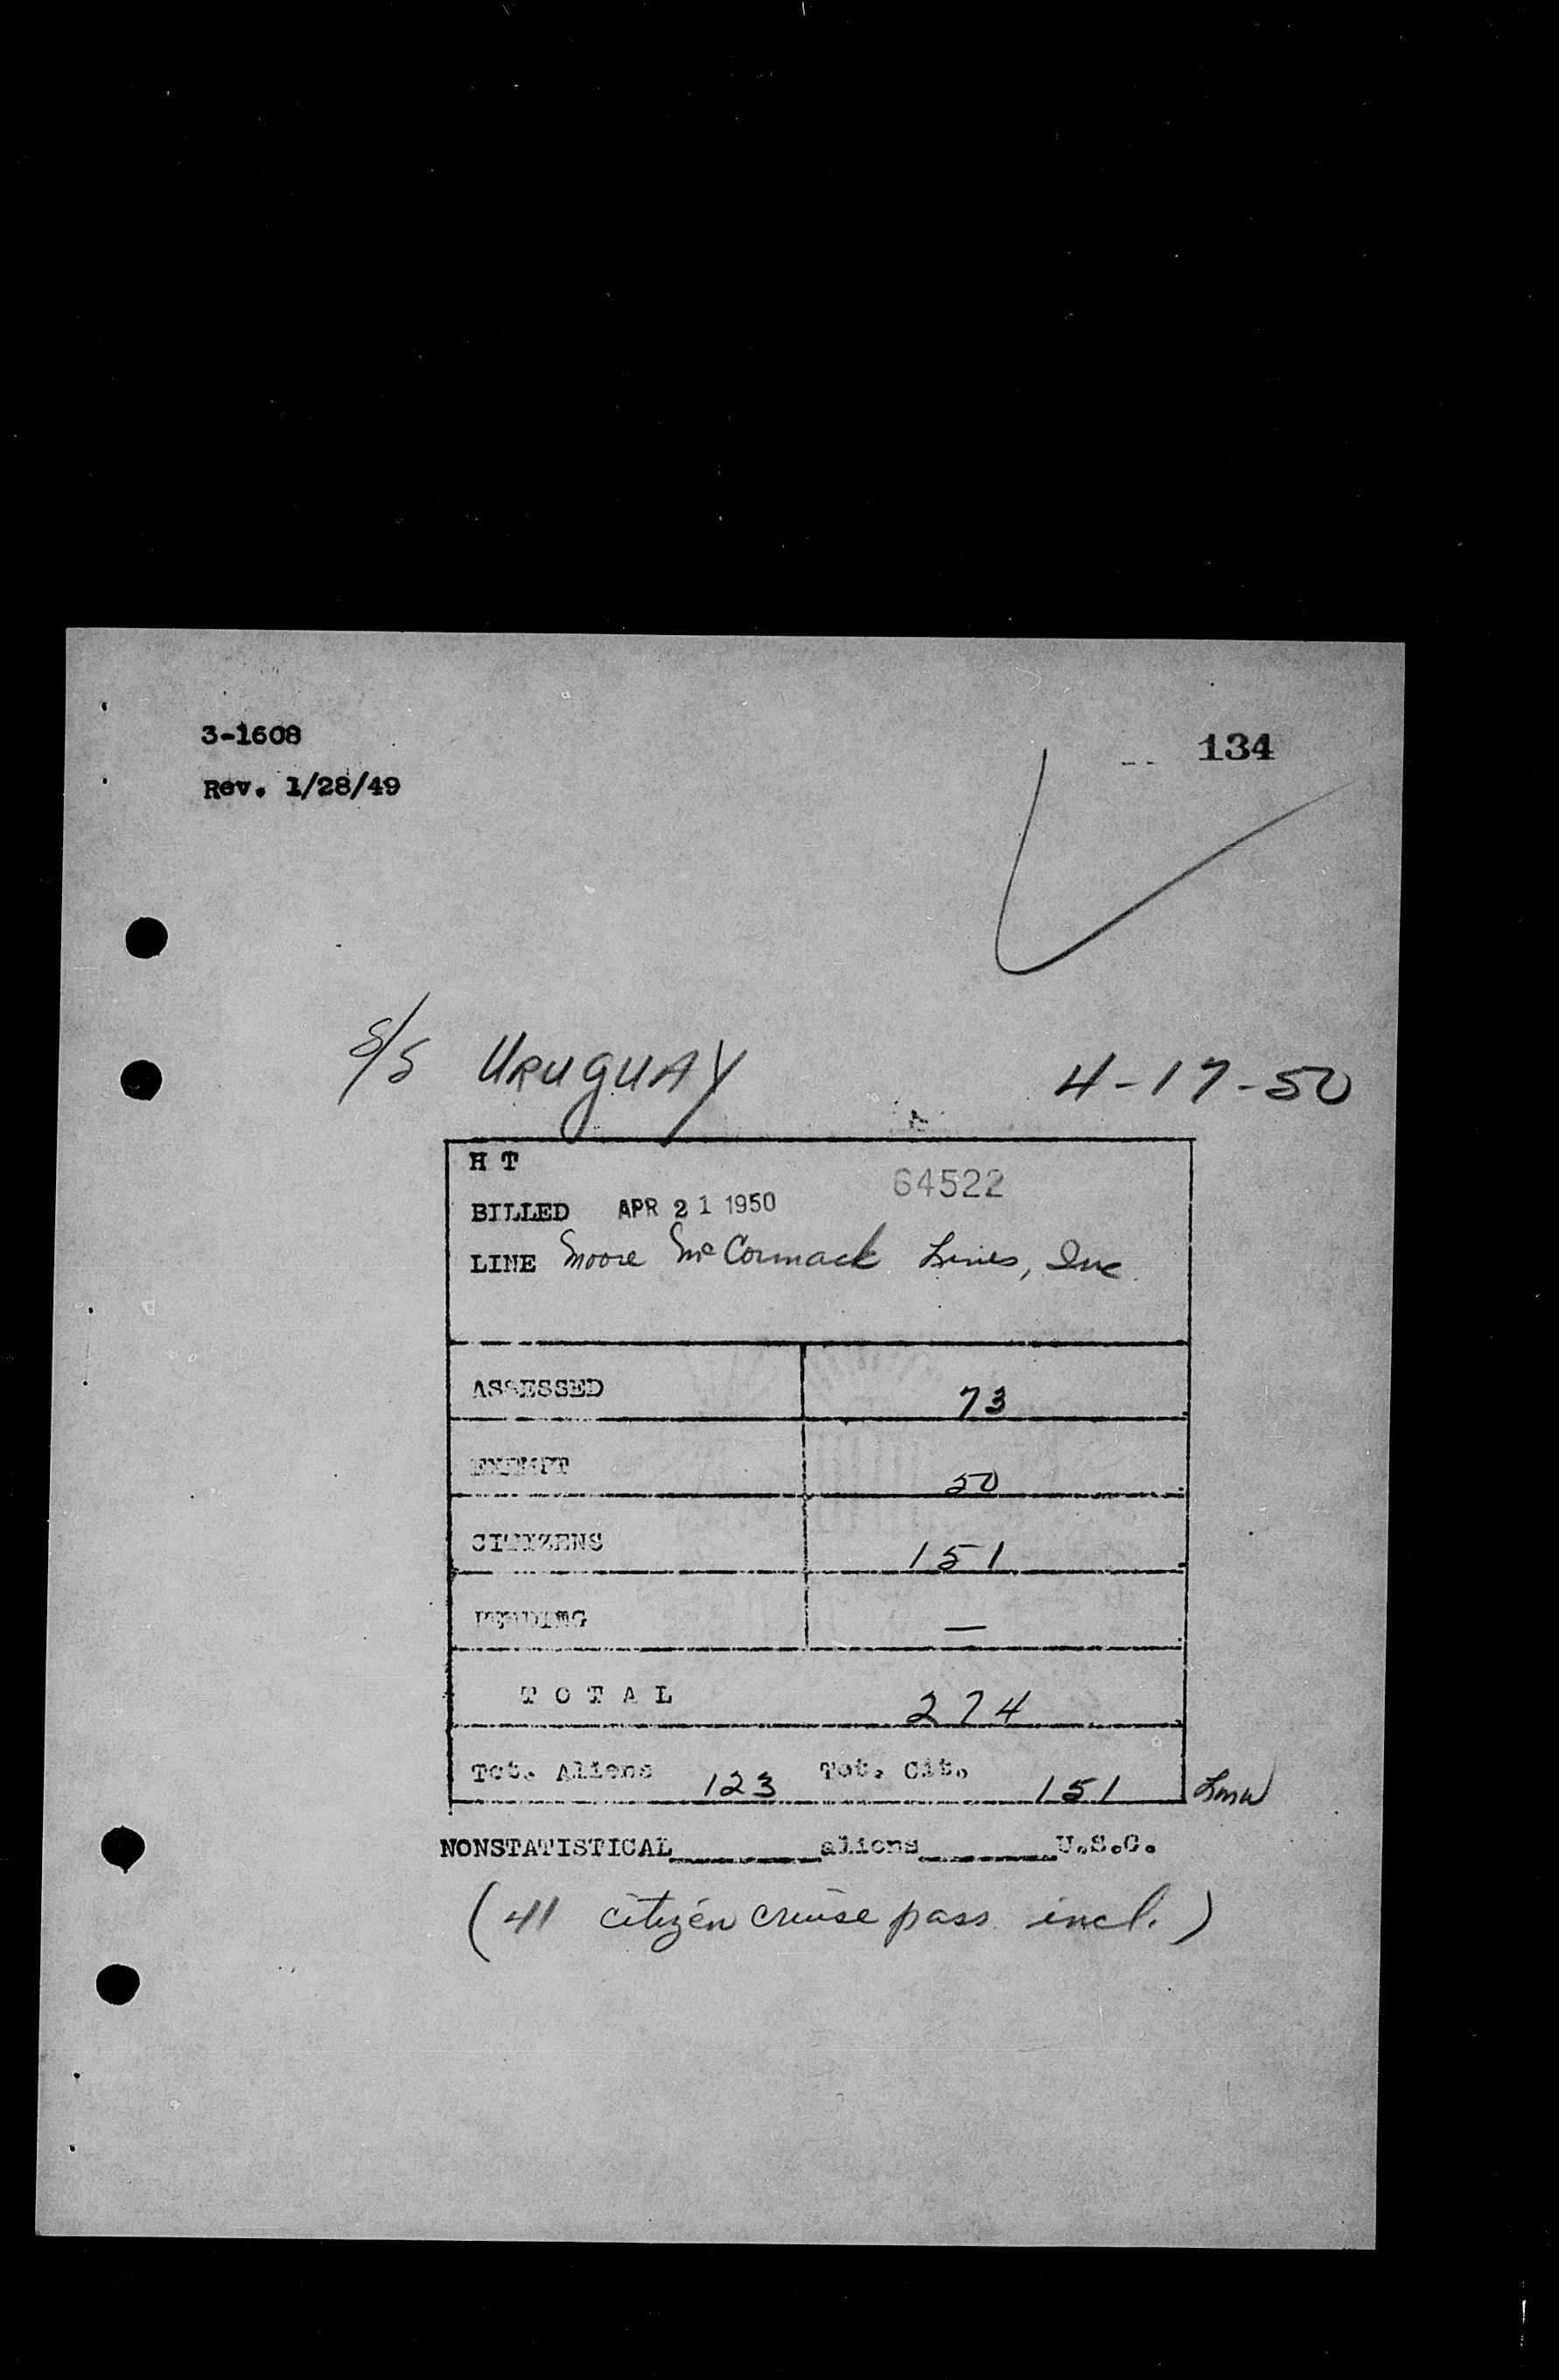 3-1608
134
Rev. 1/28/49
S/S URUGUAY 4-17-50
H T
64522
BILLED APR 21 1950
LINE Moore McCormack Lines, Inc.
ASSESSED 73
EXEMPT 50
CITIZENS 151
PENDING —
TOTAL 274
Tot. Aliens 123 Tot. Cit. 151 LMW
NONSTATISTICAL________aliens________U.S.C.
(41 citizen cruise pass. incl.)